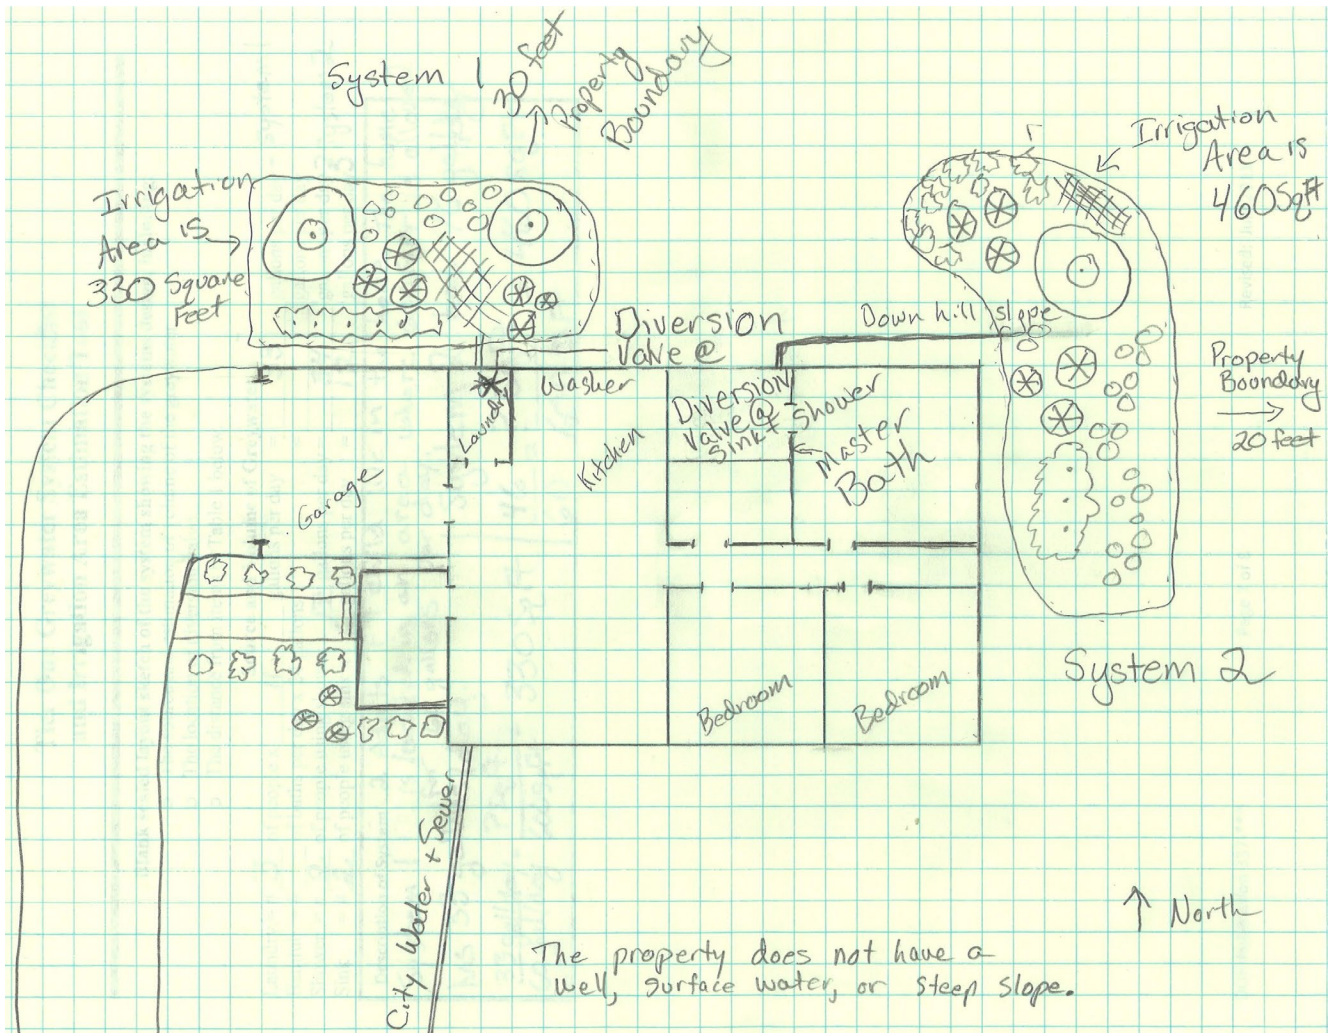 System 1
30 feet
Property
Boundary
Irrigation
Area is
330 Square
Feet
Irrigation
Area is
460 Sqft
Diversion
Valve @
Washer
Down hill slope
Property
Boundary
20 feet
Laundry
Kitchen
Diversion
Valve @
Sink + Shower
Master
Bath
Garage
Bedroom
Bedroom
System 2
City Water + Sewer
North
The property does not have a
well, surface water, or steep slope.